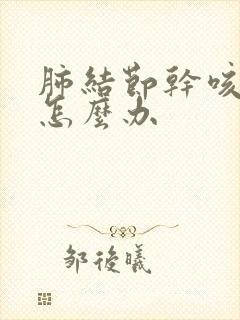 肺結節幹咳
怎麼办
邹後曦